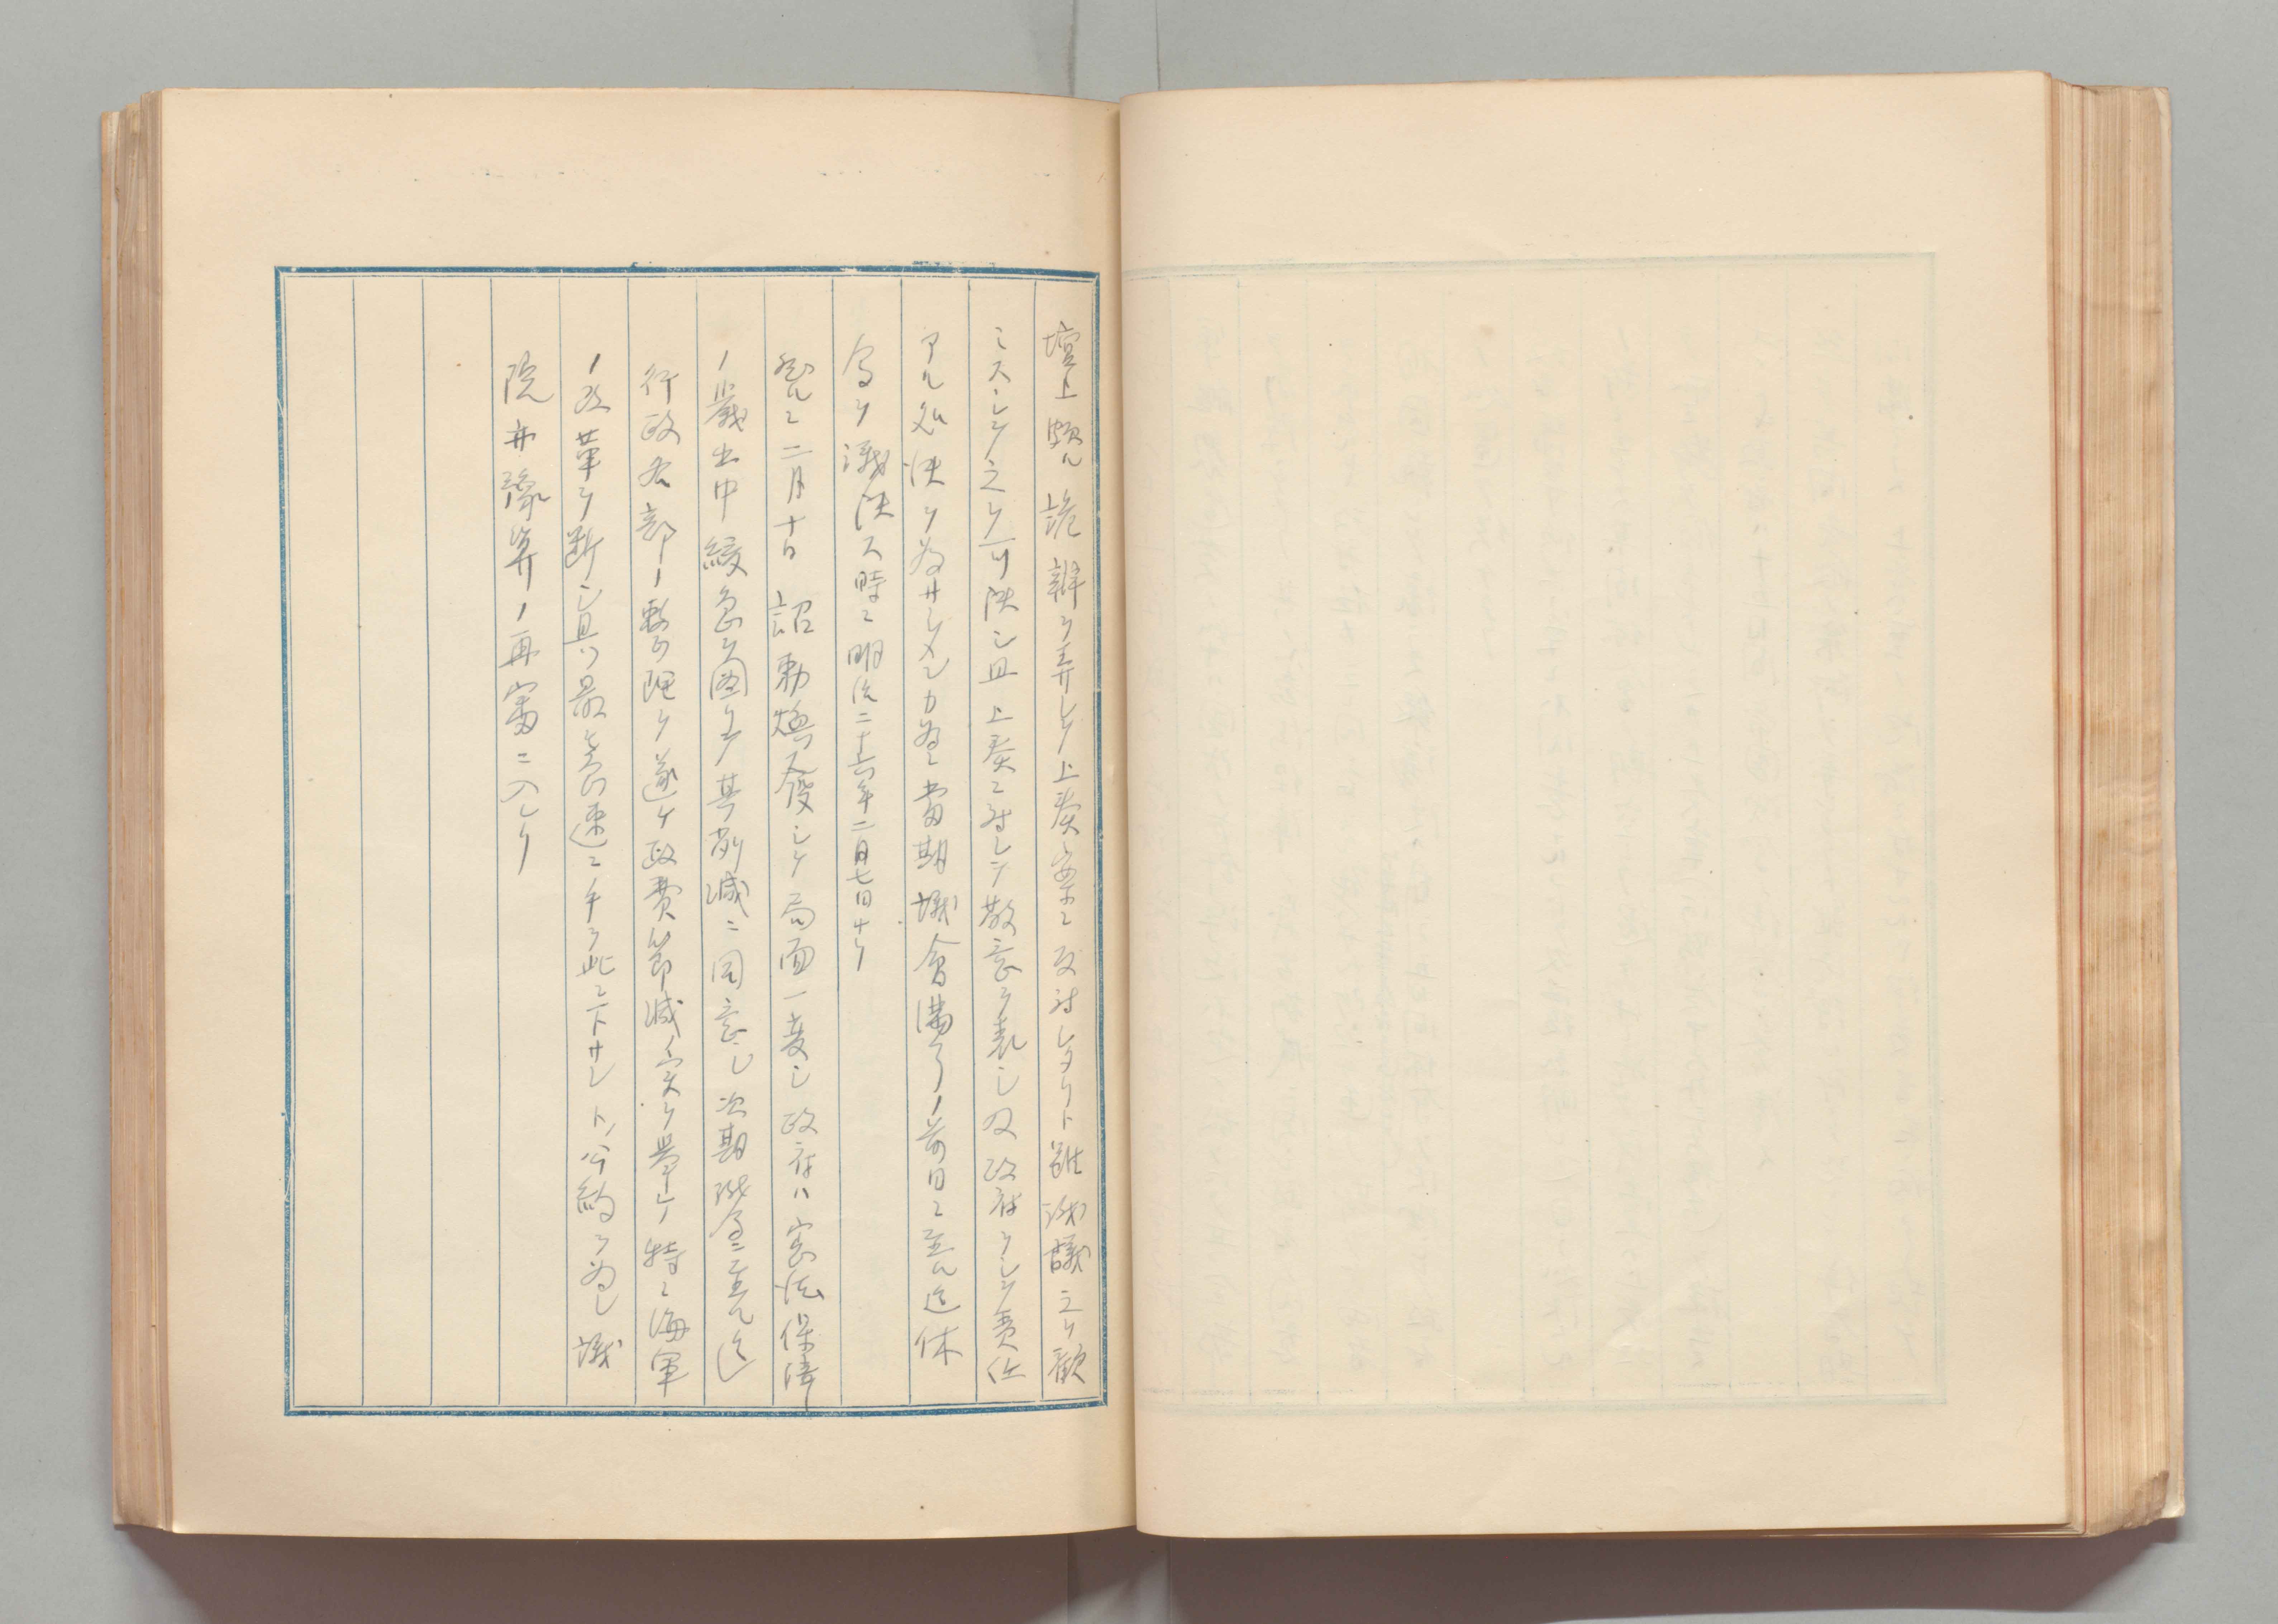 壇上頗ル詭辯ヲ弄シテ上奏案ニ反対シタリト雖議員之ヲ歓
ミスシテ之ヲ可決シ且上奏ニ対シテ敬意ヲ表シ又政府ヲシテ責任
アル処決ヲ為サシメンカ為ニ當期議會満了ノ前日ニ至ル迄休
会ヲ議決ス時ニ明治二十六年二月七日ナリ
然ルニ二月十日詔勅煥發シテ局面一変シ政府ハ憲法保障
ノ歳出中緩急ヲ圖リテ其削減ニ同意シ次期議会ニ至ル迄
行政各部ノ整理ヲ遂ケ政費節減ノ実ヲ挙ケ特ニ海軍
ノ改革ヲ断シ具ツ最急速ニ手ヲ此ニ下サントノ公約ヲ為シ議
院亦豫算ノ再審ニ入レリ